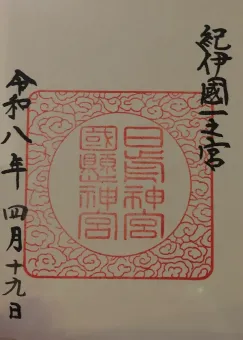 紀伊國一之宮
日前神宮
國懸神宮
令和八年四月十九日